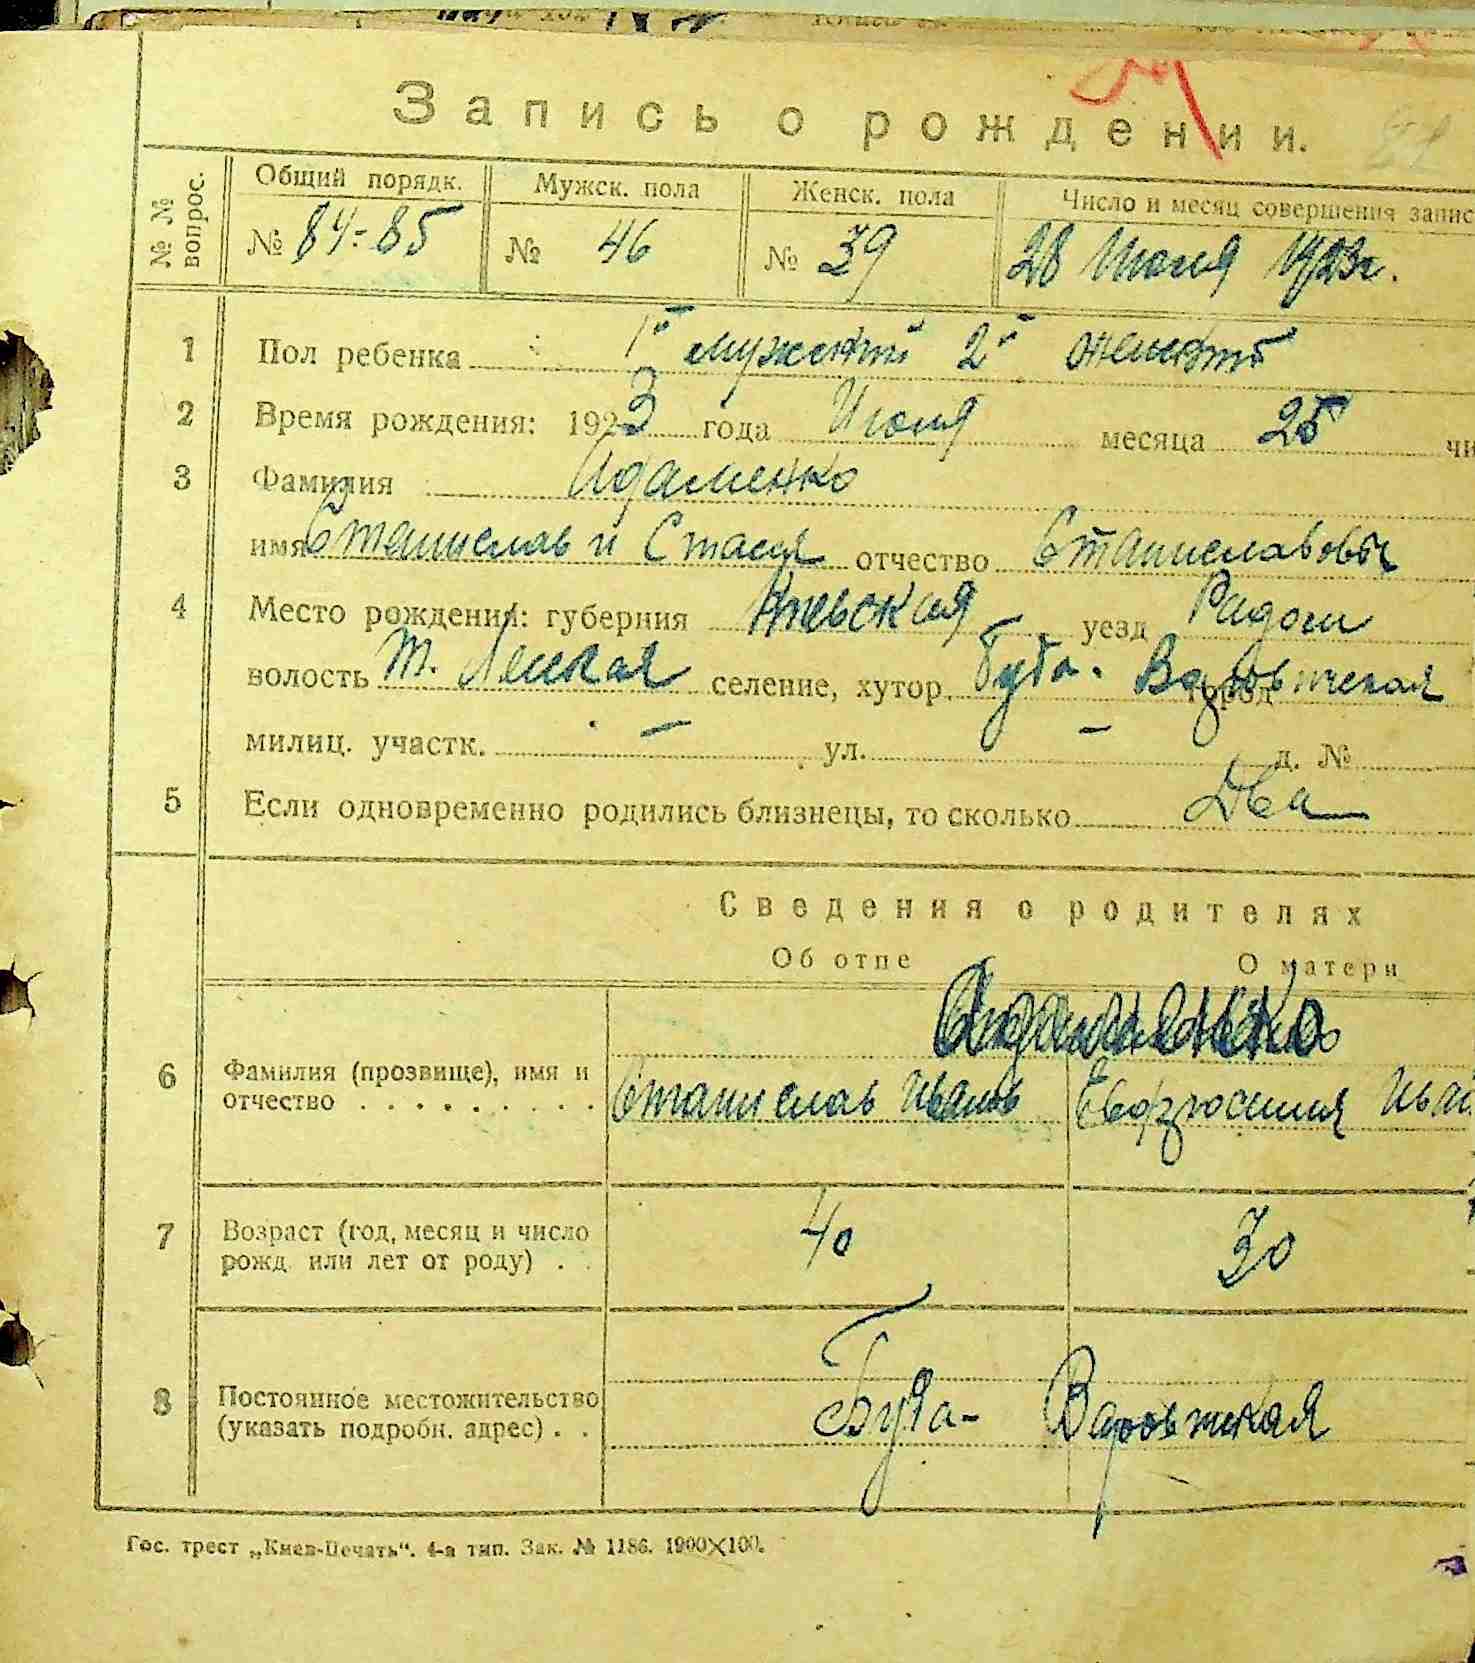 Запись о рождении.
№ № вопрос. Общий порядк. Мужск. пола Женск. пола Число и месяц совершения запис
№ 84-85 № 46 № 39 28 Июня 1923г.
1 Пол ребенка 1й мужский 2й женский
2 Время рождения: 1923 года Июня месяца 25 чи
3 Фамилия Адаменко
имя Станислав и Стася отчество Станиславовы
4 Место рождения: губерния Киевская уезд Радом
волость селение, хутор Буда- Варовическая город
милиц. участк. — ул. — д. №
5 Если одновременно родились близнецы, то сколько Два
Сведения о родителях
Об отце О матери
Адаменко
6 Фамилия (прозвище), имя и отчество . . . . . . . . . Станислав Иванов Евфросиния Иван
7 Возраст (год, месяц и число рожд. или лет от роду) . . 40 30
8 Постоянное местожительство (указать подробн. адрес) . . Буда- Варовическая
Гос. трест „Киев-Печать“. 4-а тип. Зак. № 1186. 1900×100.